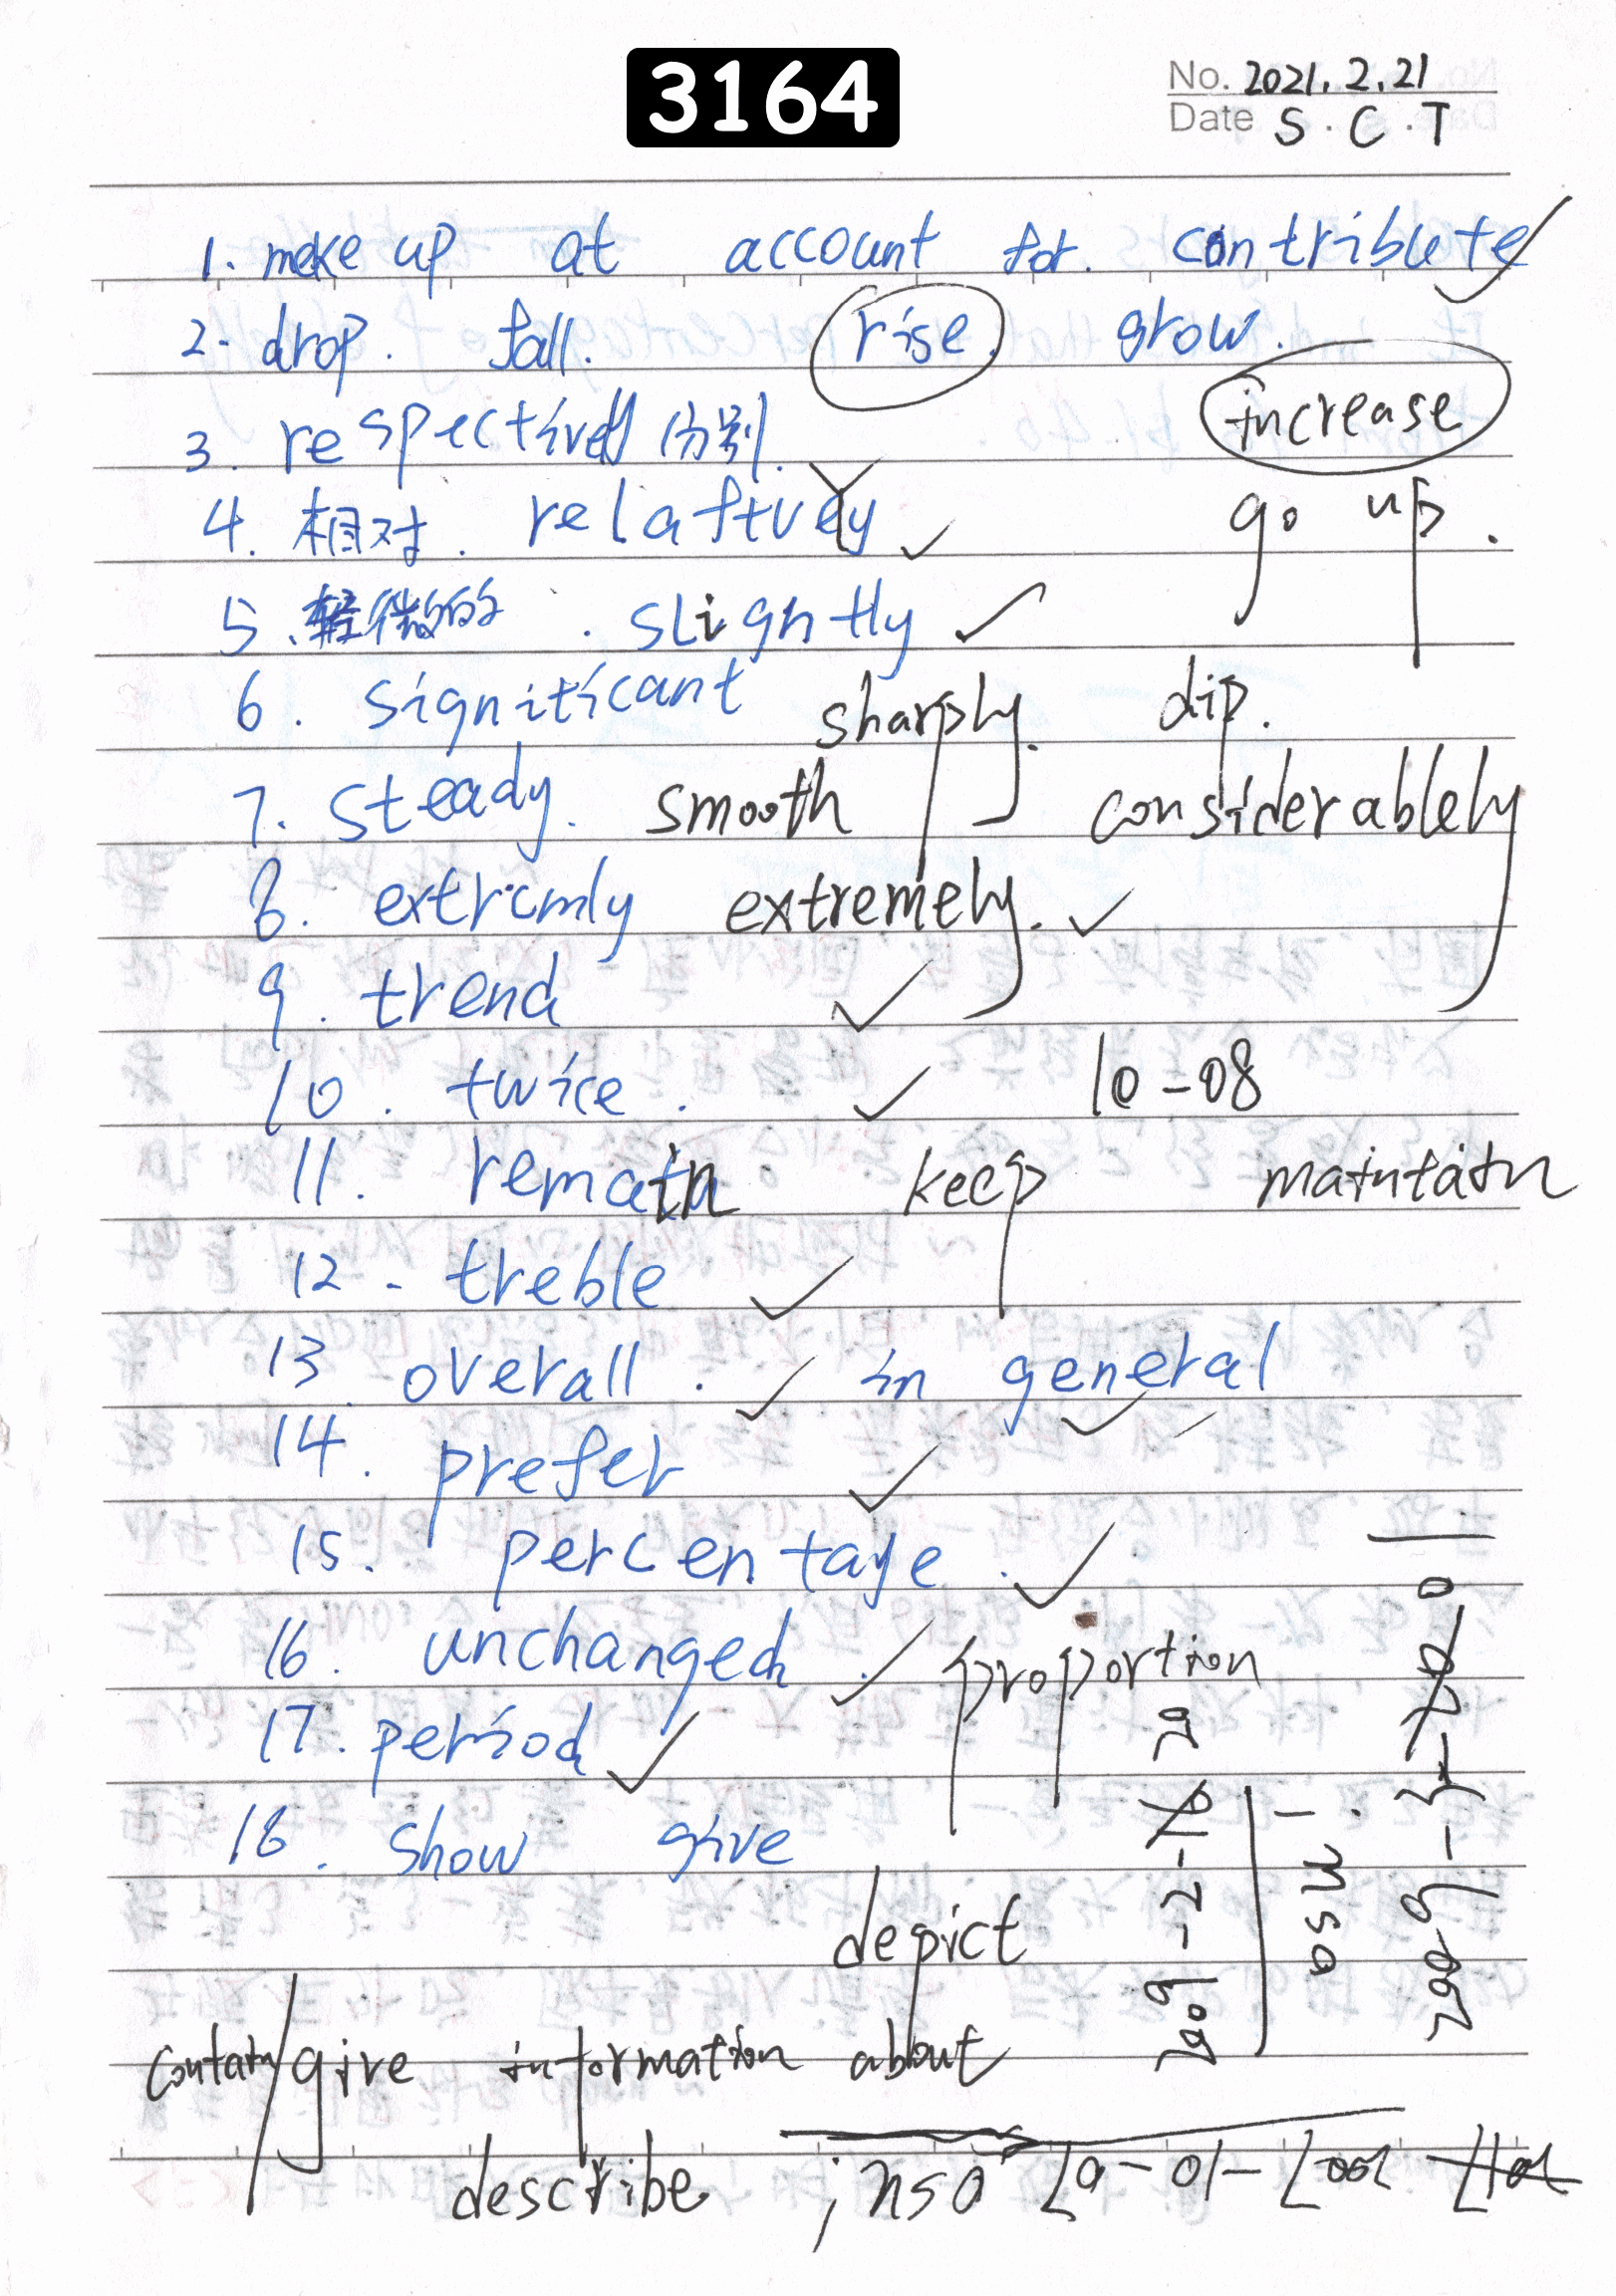 3164
No. 2021.2.21
Date S.C.T
1. make up at account for. contribute
2. drop. fall. rise. grow.
increase
3. respectively 分别.
4. 相对. relatively
go up.
5. 轻微的. slightly
6. significant sharply. dip.
7. steady. smooth considerablely
8. extremly extremely.
9. trend
10. twice. 10-08
11. remain keep maintain
12. treble
13. overall. in general
14. prefer
15. percentage.
16. unchanged.
proportion
17. period
18. show give
depict
contain/give information about
describe